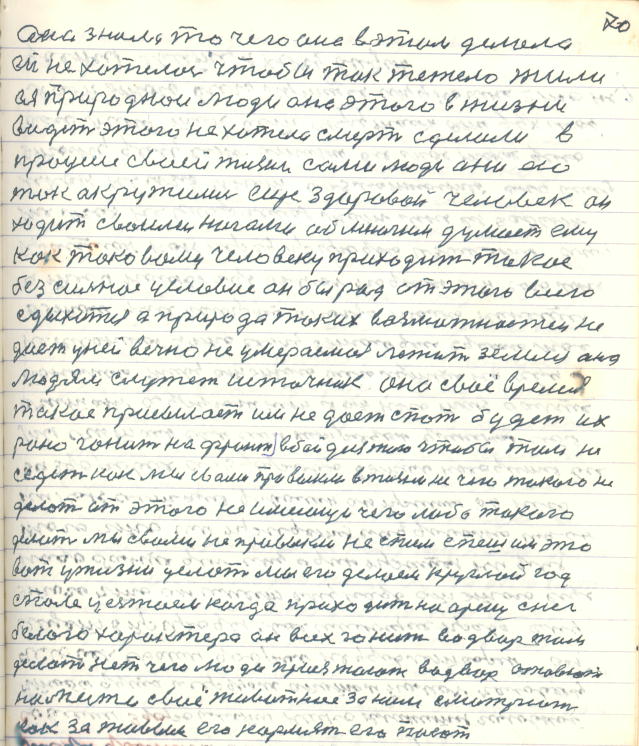 70
Она знала то чего она в этом делала
ей не хотелося чтобы так тежело жили
ся природной люди она этого в жизни
видит этого не хотела смерт сделали в
процесе своей жизни сами люди они его
так акружили еще здоровай человек он
ходит своими ногами об многим думает ему
как таковому человеку приходит такое
без силное условие он бы рад от этого всего
сдыхатця а природа таких возможностей не
дает у ней вечно не умераемая лежит земля она
людям служет источник она своё время
такое присылает им не дает спат будет их
рано гонит на фронт в бой для того чтобы там не
седет как мы свами привыкли в жизни не чего такого не
делат от этого не имеющи чего либо такого
делат мы свами не привыкли не спим спешим это
вот у жизни делат мы его делаем круглой год
стала цеятаем когда приходит на арену снег
белого характера он всех гонит во двор там
делат нет чего люди приезжают во двор ставют
на место своё животное за ним смотрют
как за живым его кормят его пасют